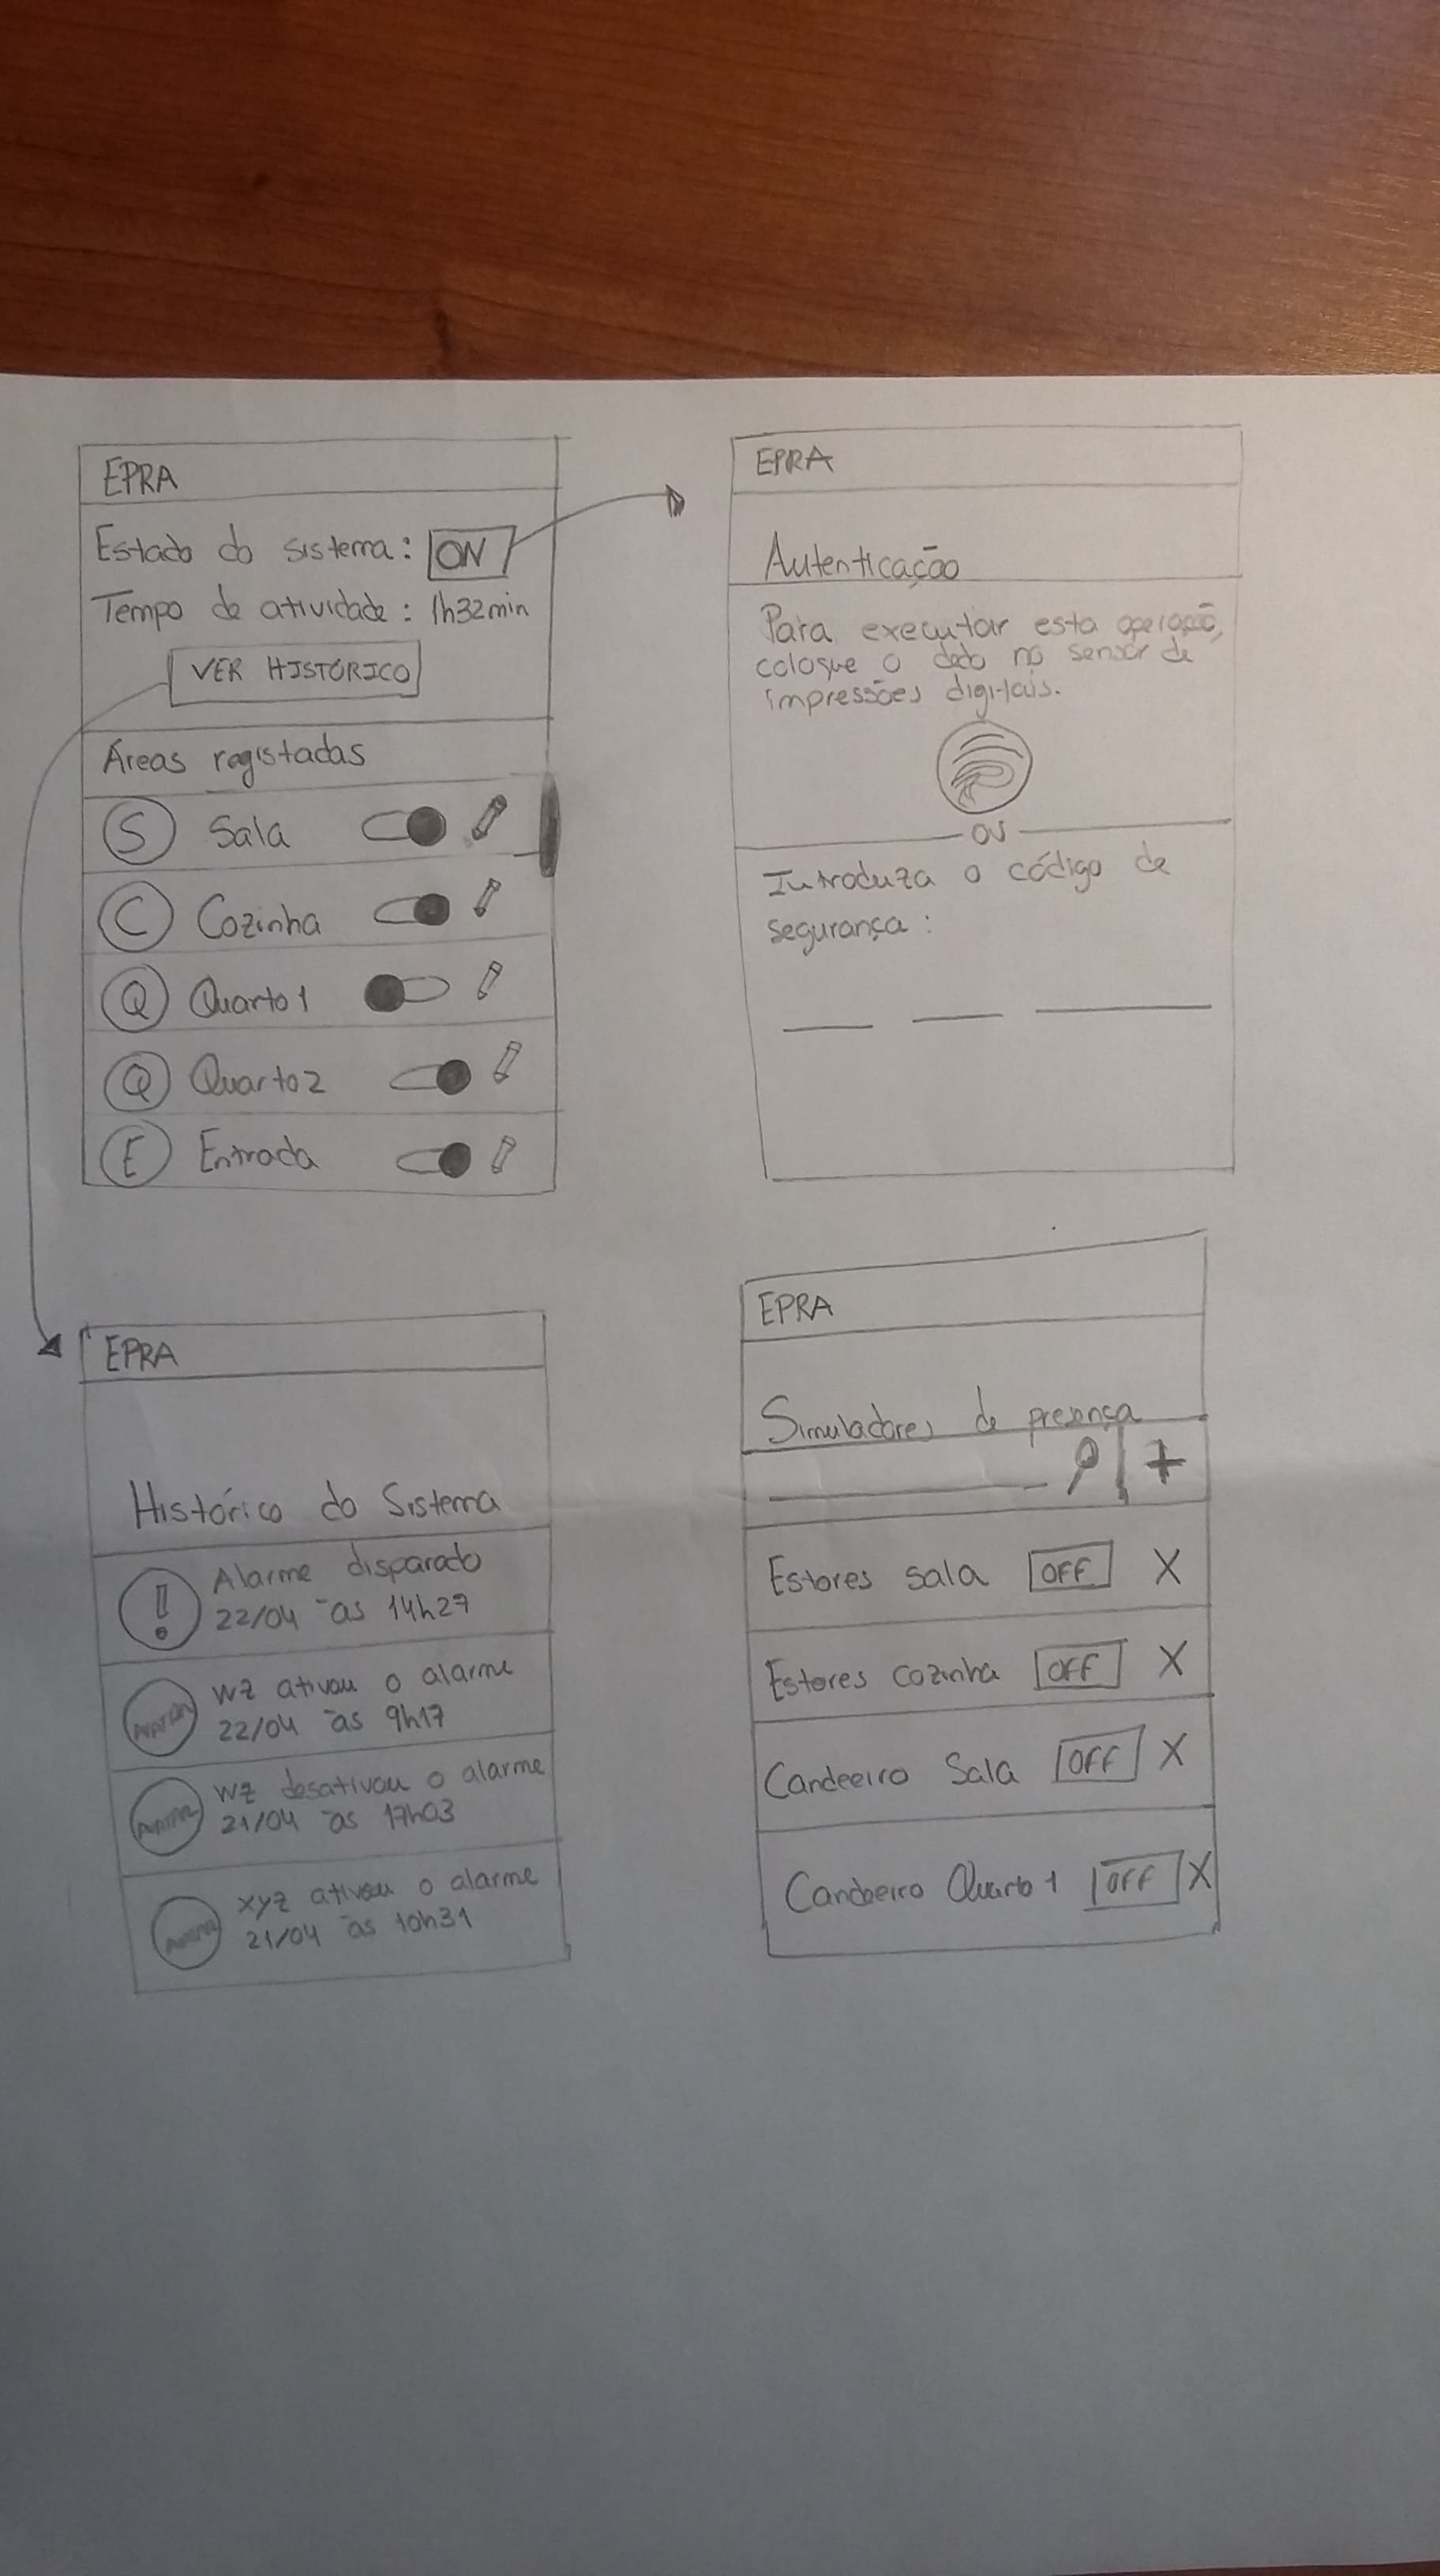 EPRA
Estado do sistema: ON
Tempo de atividade: 1h32min
VER HISTÓRICO
Áreas registadas
S Sala
C Cozinha
Q Quarto 1
Q Quarto 2
E Entrada
EPRA
Autenticação
Para executar esta operação,
coloque o dedo no sensor de
impressões digitais.
OU
Introduza o código de
segurança:
EPRA
Histórico do Sistema
! Alarme disparado
22/04 às 14h27
AVATAR
WZ ativou o alarme
22/04 às 9h17
AVATAR
WZ desativou o alarme
21/04 às 17h03
AVATAR
XYZ ativou o alarme
21/04 às 10h31
EPRA
Simuladores de presença
+
Estores sala OFF X
Estores cozinha OFF X
Candeeiro Sala OFF X
Candeeiro Quarto 1 OFF X